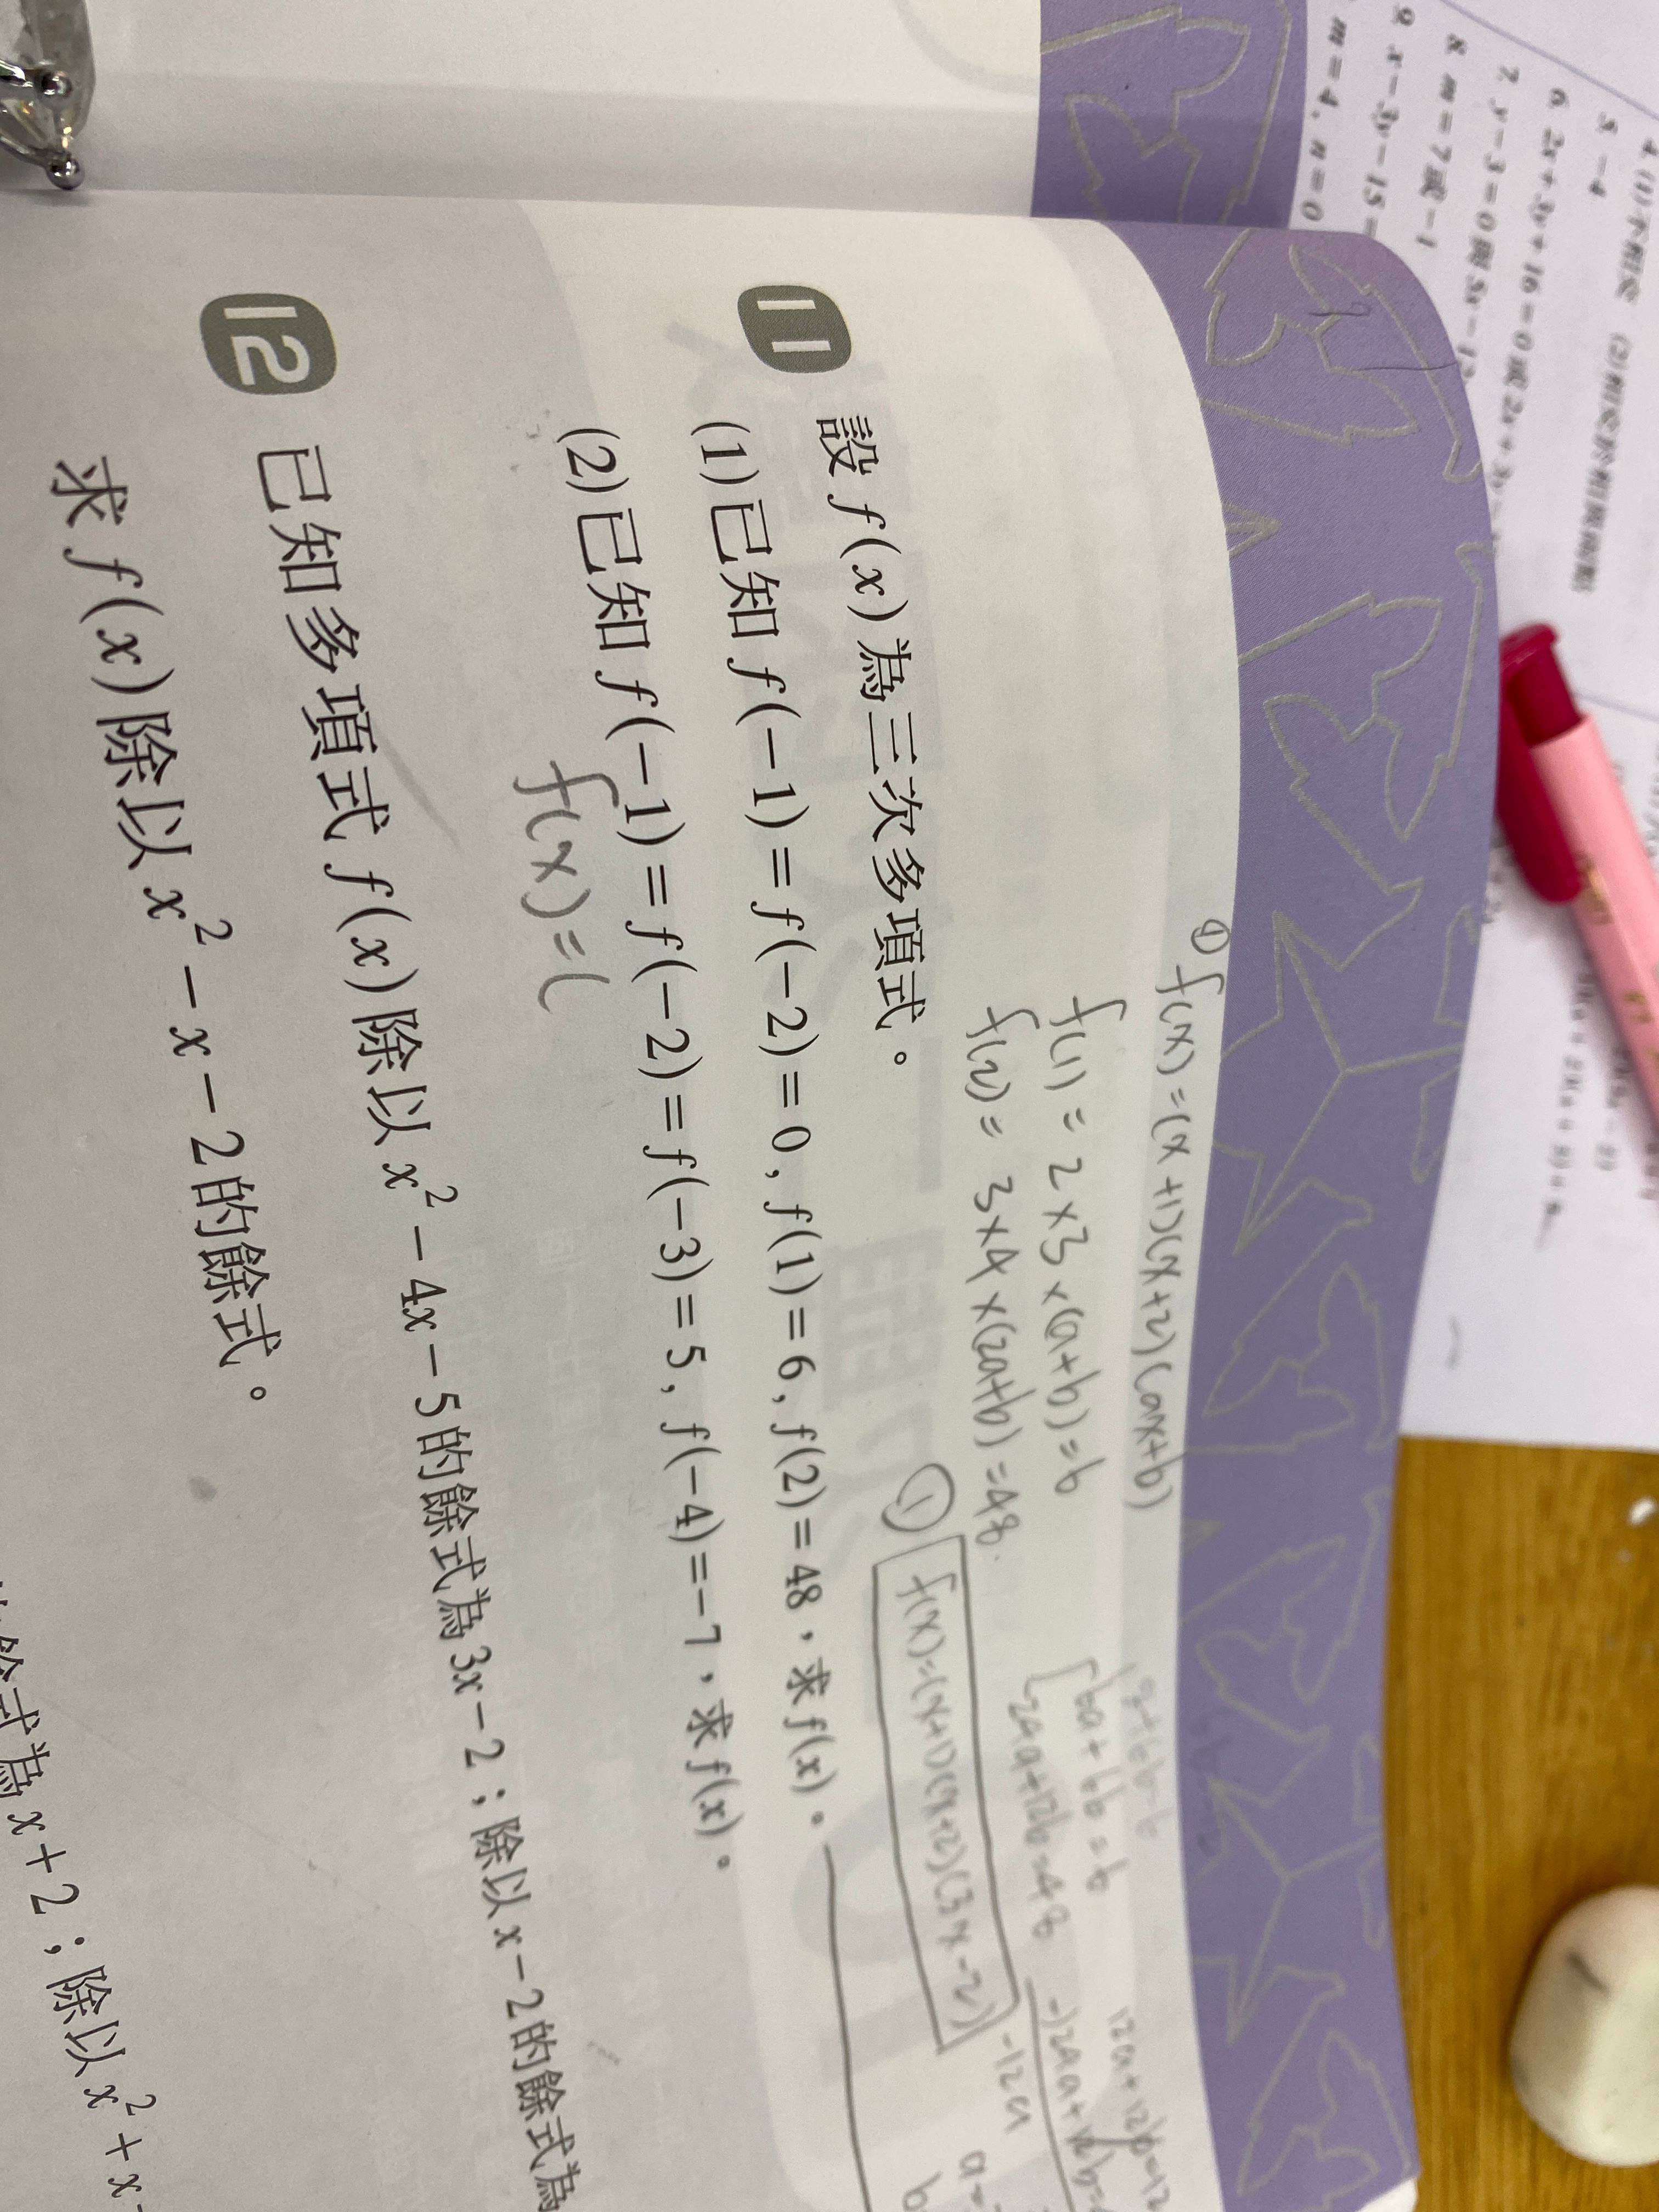 4. (1)不相交 (2)相交於相異兩點
5. -4
6. 2x+3y+16=0或2x+3y
7. y-3=0與3x
8. m=7或-1
9. x-3y-15=
m=4, n=0
① f(x)=(x+1)(x+2)(ax+b)
f(1)=2×3×(a+b)=6
f(2)=3×4×(2a+b)=48.
6a+6b=6
24a+12b=48
12a+12b=12
-)24a+12b=
-12a
a=
b
① f(x)=(x+1)(x+2)(3x-2)
11 設 f(x)為三次多項式。
(1)已知 f(-1)=f(-2)=0, f(1)=6, f(2)=48,求 f(x)。
(2)已知 f(-1)=f(-2)=f(-3)=5, f(-4)=-7,求 f(x)。
f(x)=(
12 已知多項式 f(x)除以 x²-4x-5的餘式為3x-2;除以 x-2的餘式為
求 f(x)除以 x²-x-2的餘式。
餘式為 x+2;除以 x²+x-